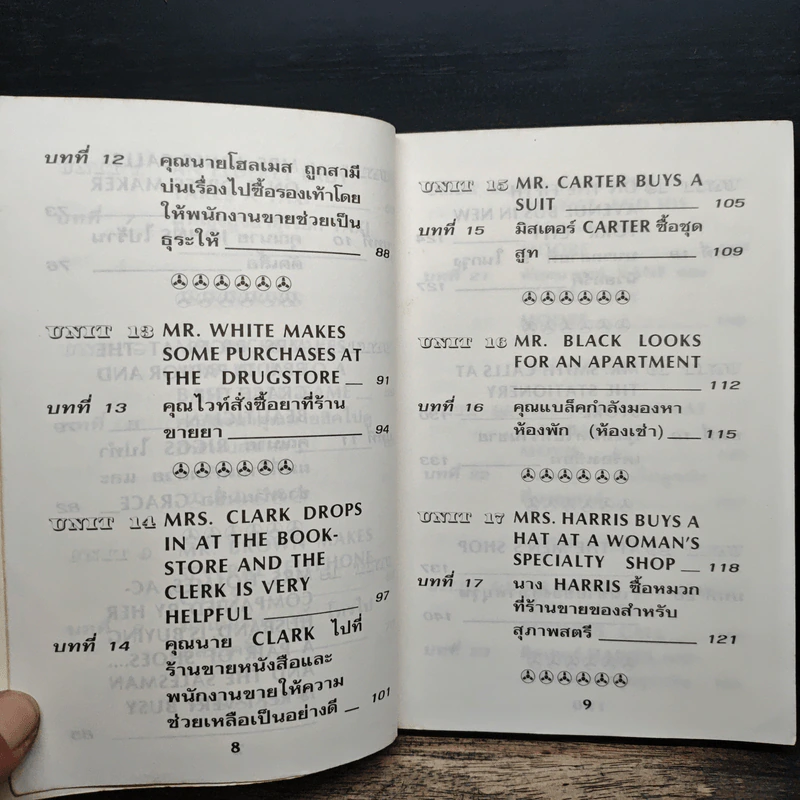 บทที่ 12 คุณนายโฮลเมส ถูกสามี
บ่นเรื่องไปซื้อรองเท้าโดย
ให้พนักงานขายช่วยเป็น
ธุระให้ 88
UNIT 13 MR. WHITE MAKES
SOME PURCHASES AT
THE DRUGSTORE 91
บทที่ 13 คุณไวท์สั่งซื้อยาที่ร้าน
ขายยา 94
UNIT 14 MRS. CLARK DROPS
IN AT THE BOOK-
STORE AND THE
CLERK IS VERY
HELPFUL 97
บทที่ 14 คุณนาย CLARK ไปที่
ร้านขายหนังสือและ
พนักงานขายให้ความ
ช่วยเหลือเป็นอย่างดี 101
8
UNIT 15 MR. CARTER BUYS A
SUIT 105
บทที่ 15 มิสเตอร์ CARTER ซื้อชุด
สูท 109
UNIT 16 MR. BLACK LOOKS
FOR AN APARTMENT
112
บทที่ 16 คุณแบล็คกำลังมองหา
ห้องพัก (ห้องเช่า) 115
UNIT 17 MRS. HARRIS BUYS A
HAT AT A WOMAN'S
SPECIALTY SHOP 118
บทที่ 17 นาง HARRIS ซื้อหมวก
ที่ร้านขายของสำหรับ
สุภาพสตรี 121
9